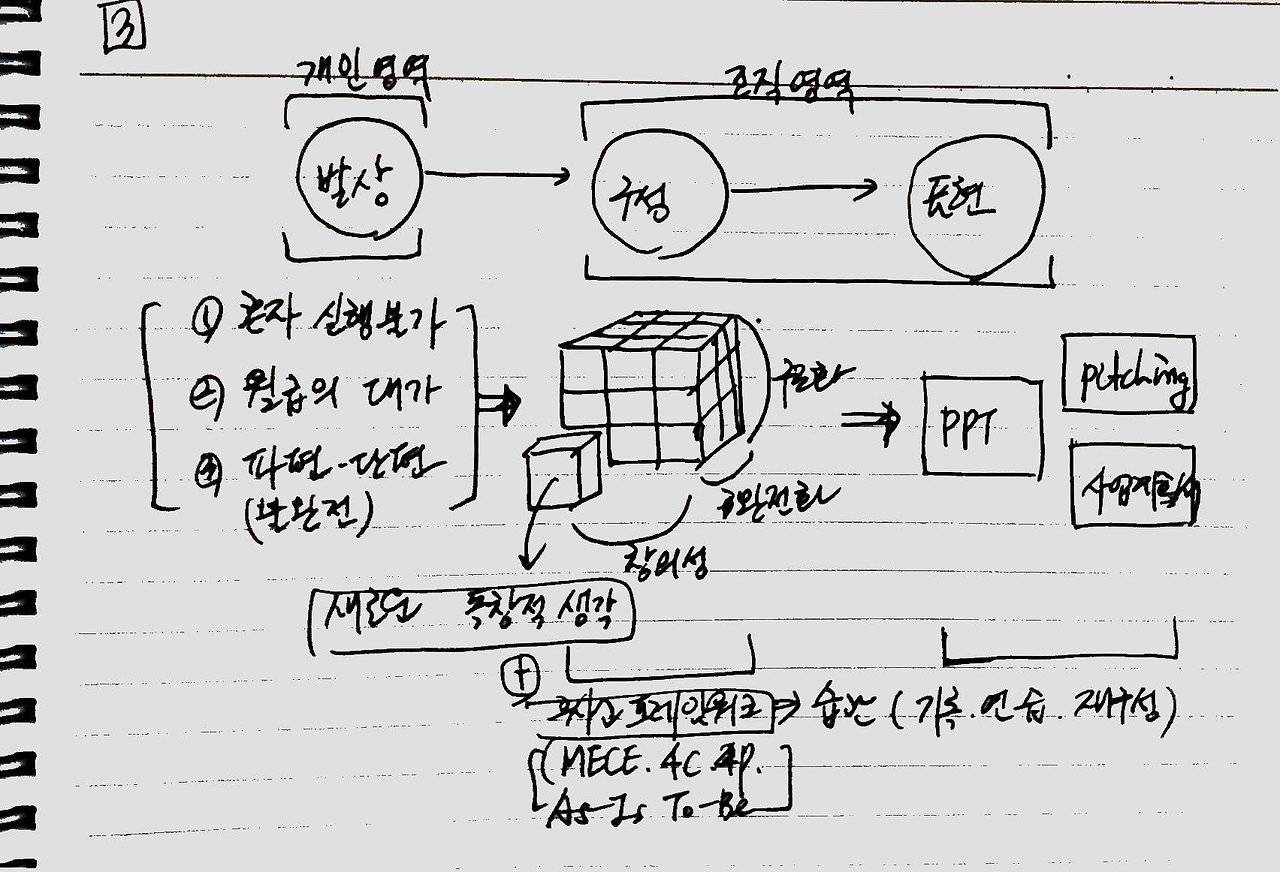 3
개인영역
조직영역
발상
구성
표현
① 혼자 실행불가
② 월급의 대가
③ 파편·단면
(불완전)
구조화
완전화
창의성
PPT
pitching
사업계획서
새로운 독창적 생각
+
프레임워크 ⇒ 습관 (기록·연습·재구성)
(MECE. 4C. 4P.
As-Is To-Be